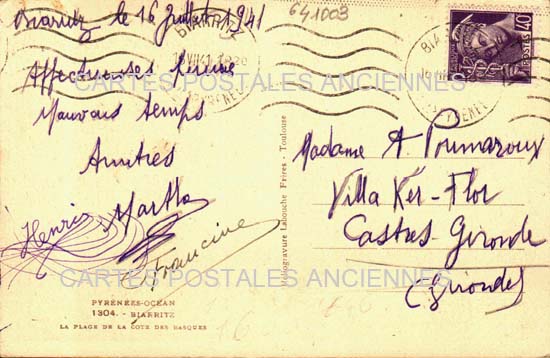 Biarritz le 16 Juillet 1941
641003
Affectueuses
Mauvais temps
Amitiés
Martha
Henri
Francine
PYRÉNÉES-OCÉAN
1304. - BIARRITZ
LA PLAGE DE LA COTE DES BASQUES
Héliogravure Labouche Frères - Toulouse
POSTES 40
BIARRITZ
Madame A. Poumaroux
Villa Ker-Flor
Castres-Gironde
(Gironde)
CARTES POSTALES ANCIENNES
CARTES POSTALES ANCIENNES